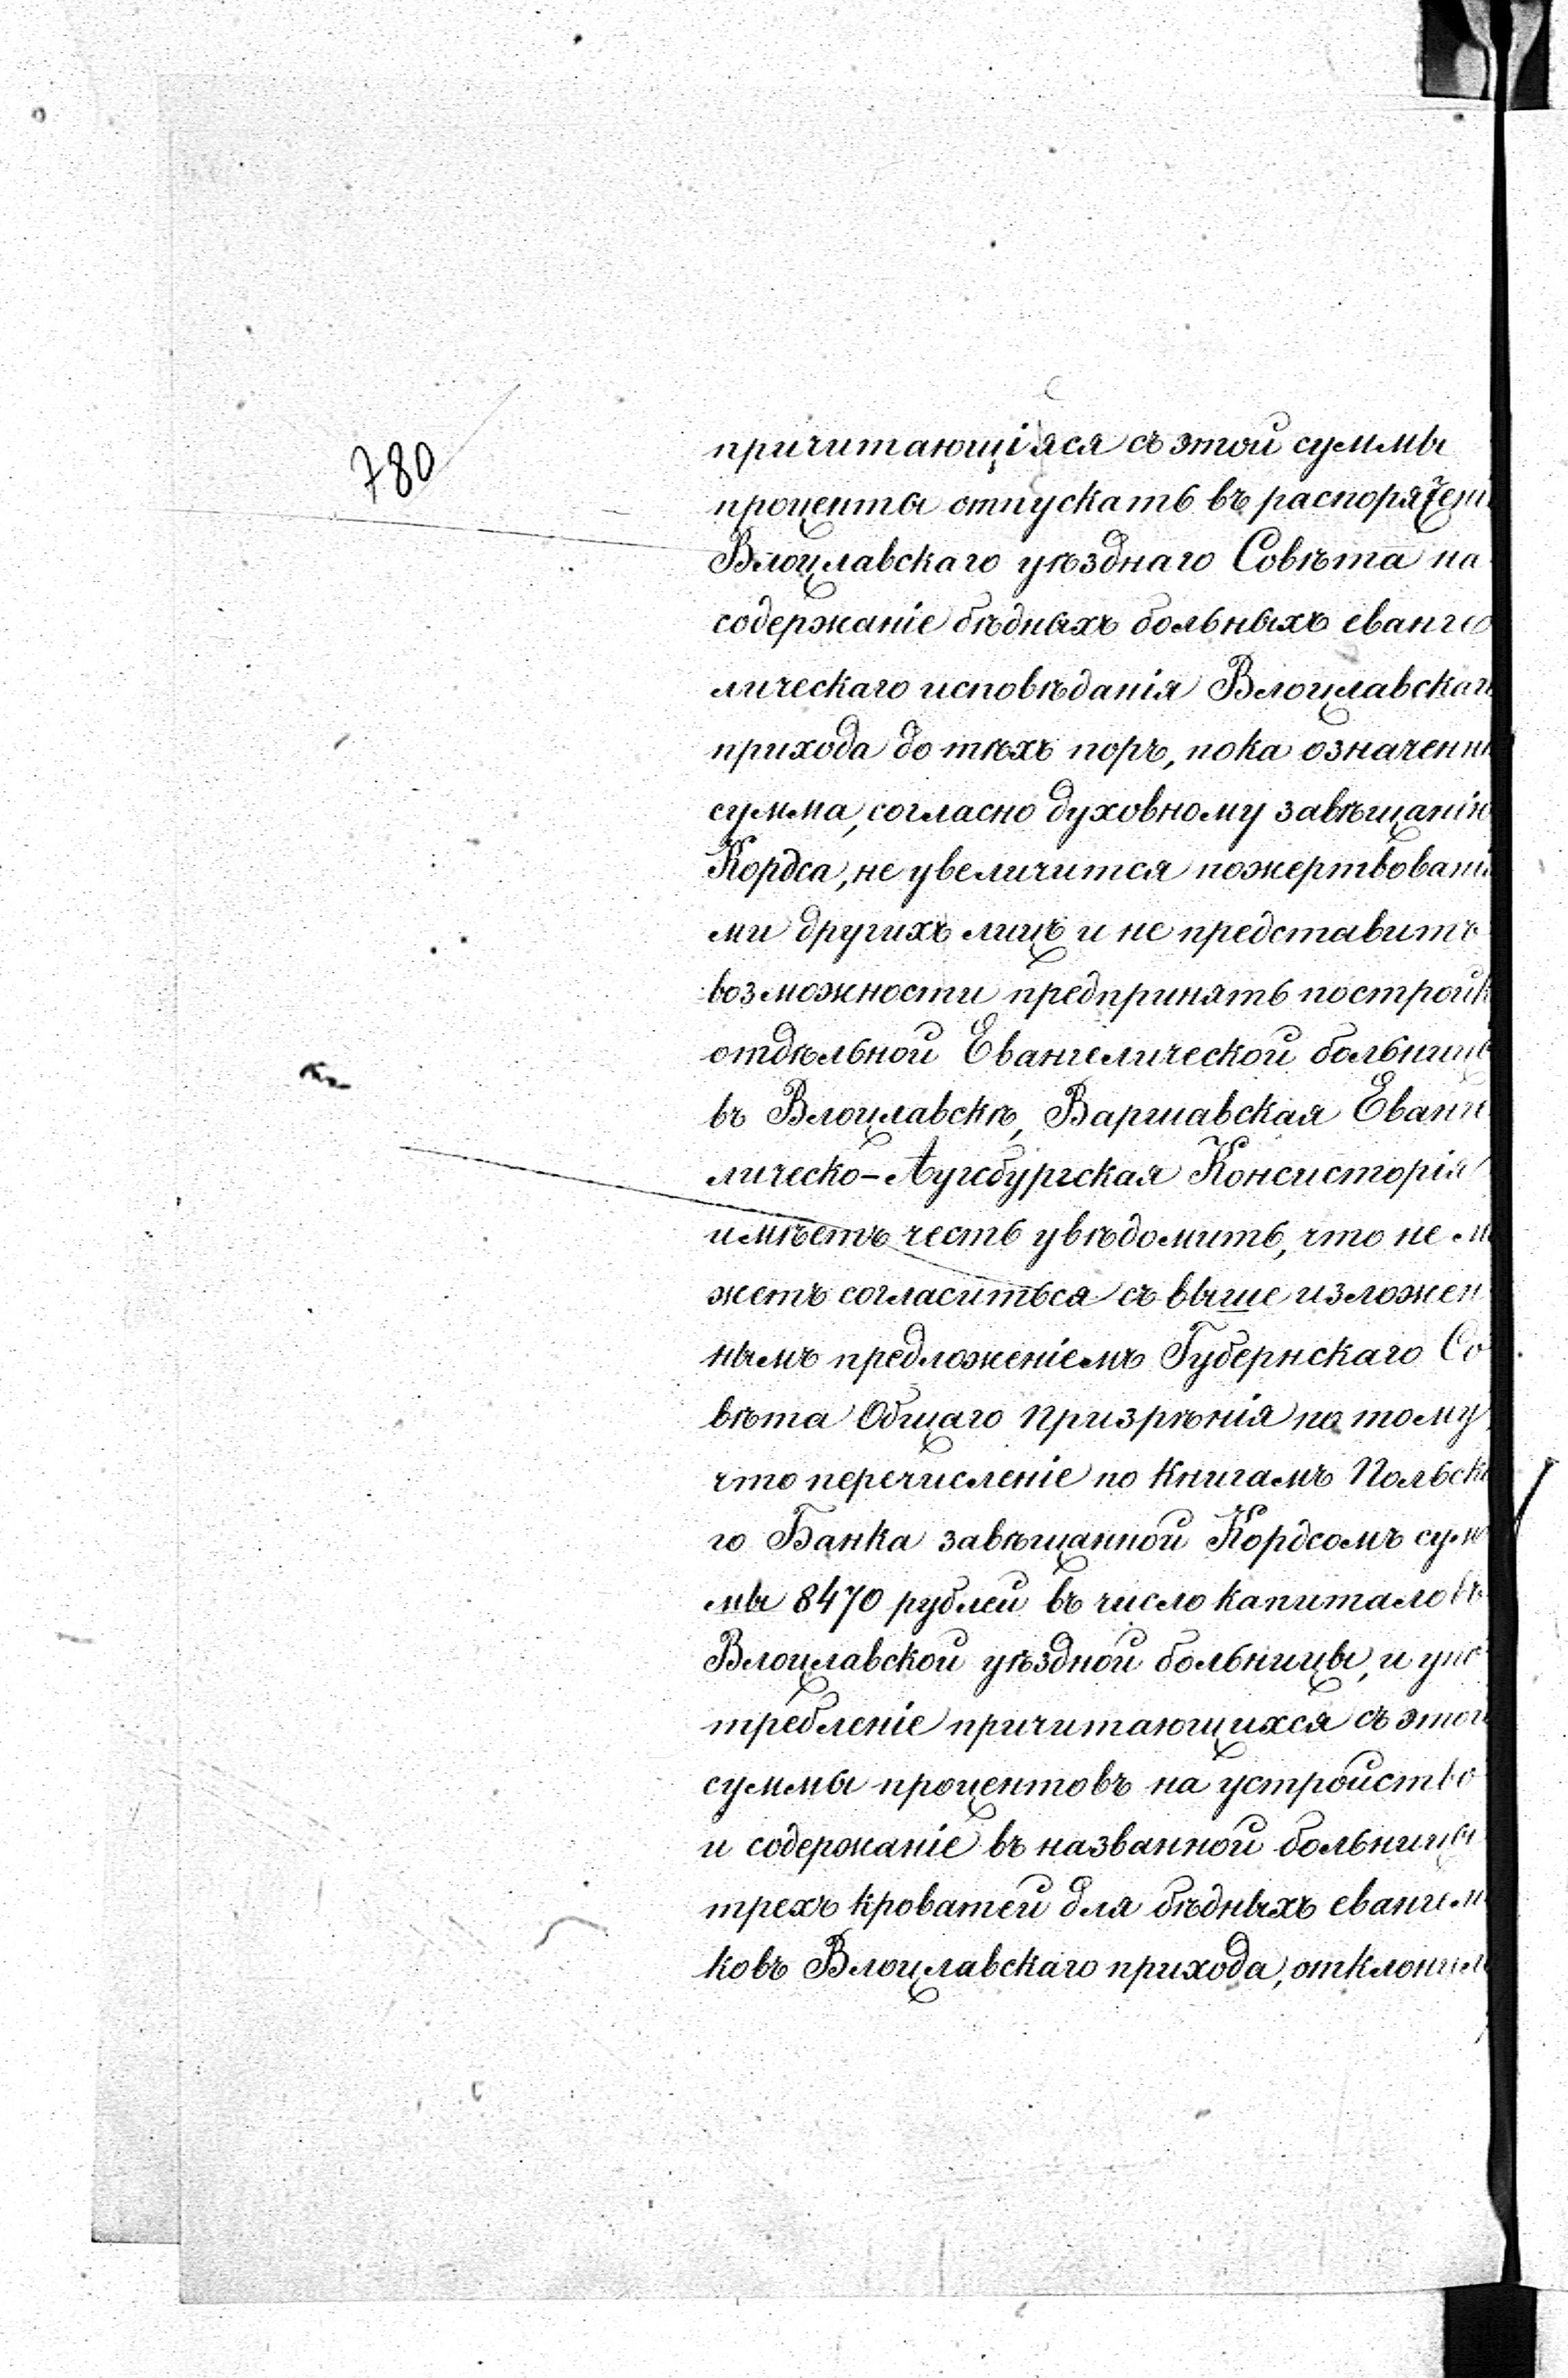 780
причитающіяся съ этой суммы
проценты отпускать въ распоряжені
Влоцлавскаго уѣзднаго Совѣта на
содержаніе бѣдныхъ больныхъ еванге
лическаго исповѣданія Влоцлавскаго
прихода до тѣхъ поръ, пока означенн
сумма, согласно духовному завѣщанію
Кордса, не увеличится пожертвовані
ми другихъ лицъ и не представитъ
возможности предпринять постройк
отдѣльной Евангелической больниц
въ Влоцлавскѣ, Варшавская Еванге
лическо-Аугсбургская Консисторія
имѣетъ честь увѣдомить, что не м
жетъ согласиться съ выше изложен
нымъ предложеніемъ Губернскаго Со
вѣта Общаго Призрѣнія потому,
что перечисленіе по книгамъ Польска
го Банка завѣщанной Кордсомъ сум
мы 8470 рублей въ число капиталовъ
Влоцлавской уѣздной больницы, и упо
требленіе причитающихся съ этой
суммы процентовъ на устройство
и содержаніе въ названной больницы
трехъ кроватей для бѣдныхъ евангели
ковъ Влоцлавскаго прихода, отклонил